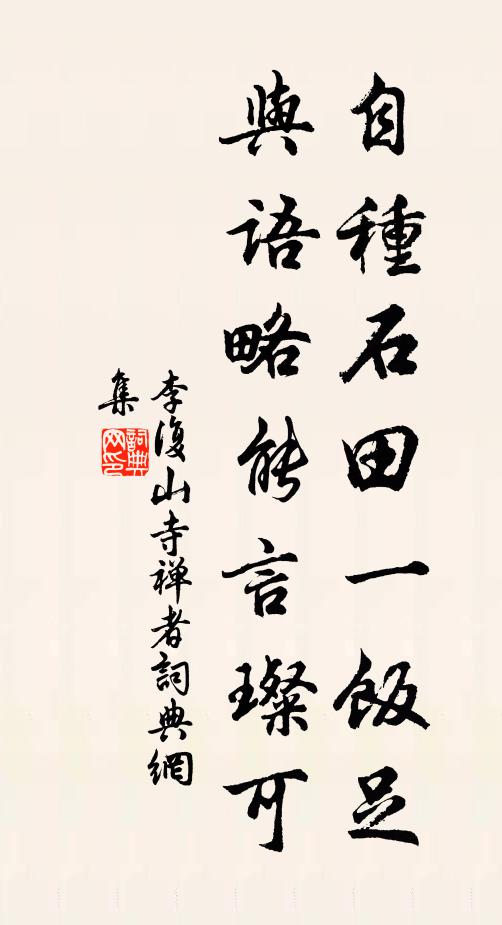 自種石田一飯足
與語略能言璨可
李復山寺禅者詞典網
集
詞典
网印